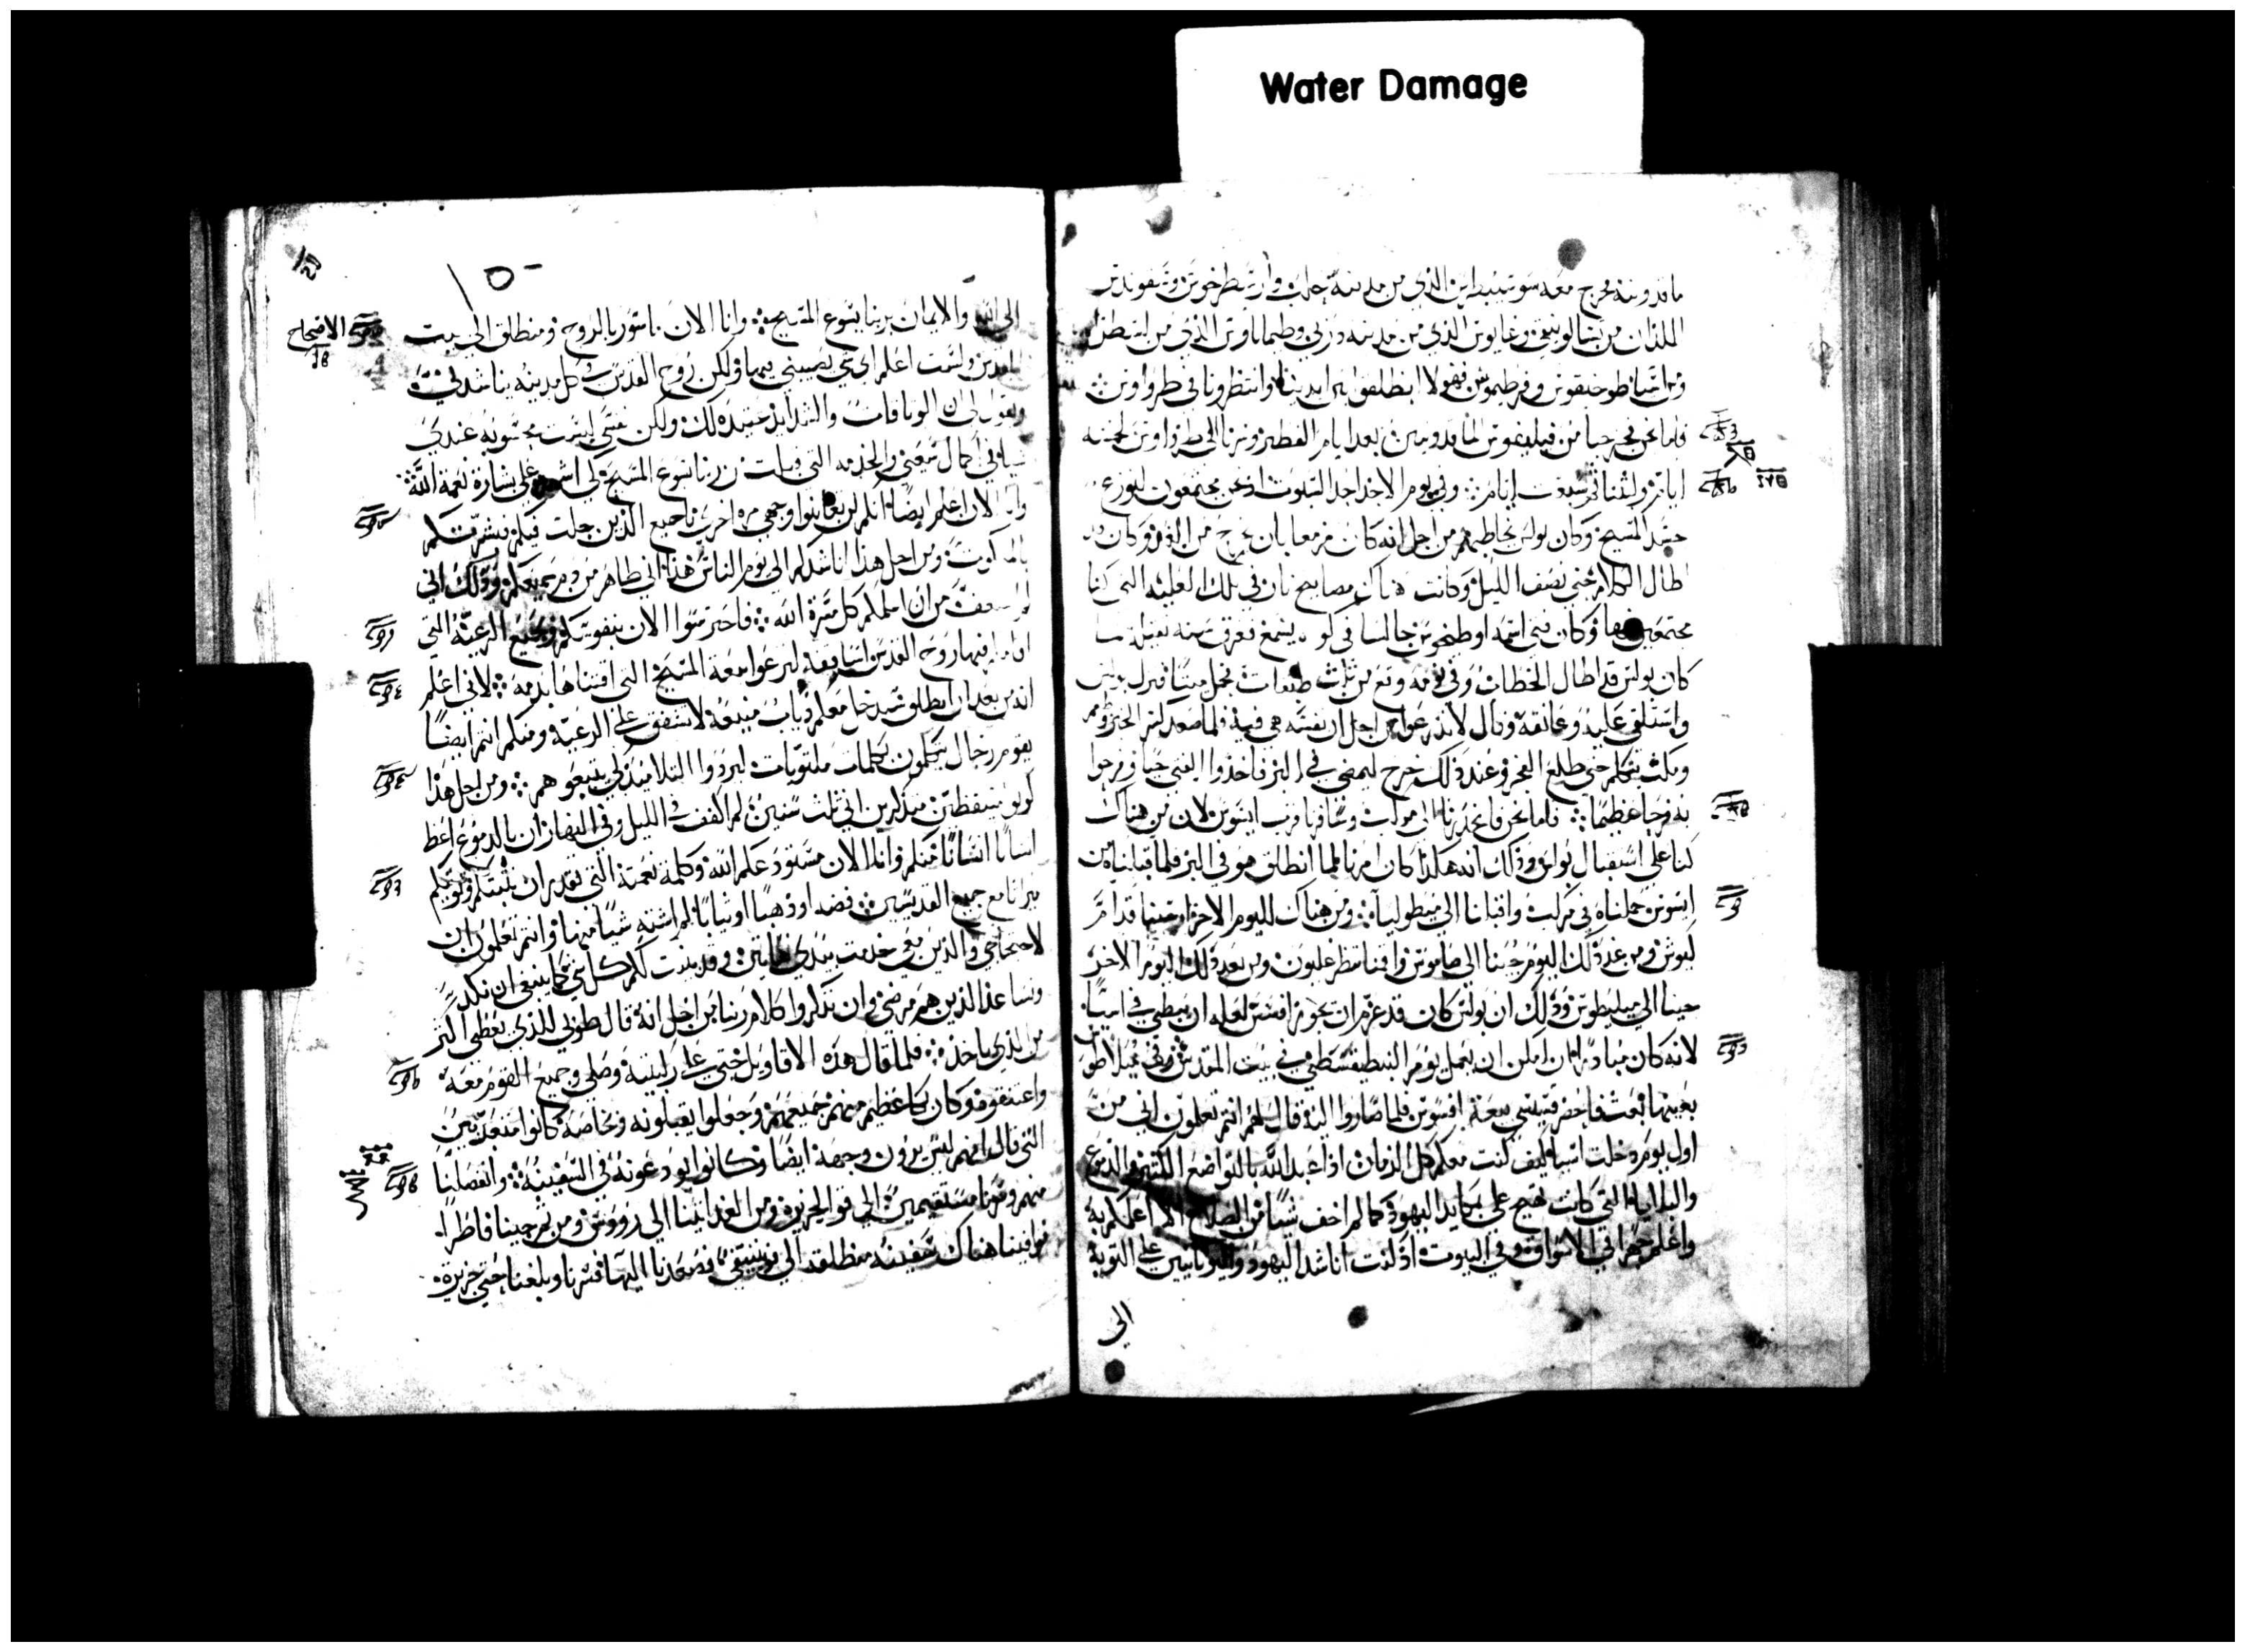 Water Damage
ماقدونيه فخرج معه سوسيبطرس الذي من مدينة حلب وارسطرخوس وسقوندس
اللذان من تسالونيقي وغايوس الذي من مدينه دربي وطيماثاوس الذي من لسطرا
ومن اسيا طوخيقوس وطرفيموس فهولا انطلقوا بين ايدينا وانتظرونا في طرواوس
فاما نحن فخرجنا من فيليفوس الماقدونيين بعد ايام الفطير وسرنا الى طرواوس لخمسه
ايام ولبثنا ثم سبعت ايام وفي يوم الاحد اجد السبوت اذ نحن مجتمعون لنوزع
جسد المسيح وكان بولس يخاطبهم من اجل انه كان مزمعا بان يخرج من الغد وكان قد
اطال الكلام حتى نصف الليل وكانت هناك مصابيح نار في تلك العليه التي كنا
مجتمعين فيها وكان فتى اسمه اوطيخوس جالسا في كوه يسمع فغرق بسنه ثقيله لما
كان بولس قد اطال الخطاب وفي نومه وقع من ثلث طبقات فحمل ميتا فنزل بولس
واستلقى عليه وعانقه وقال لا تذعروا من اجل ان نفسه هي فيه فلما صعد كسر الخبز
ومكث يتكلم حتى طلع الفجر وعند ذلك خرج ليمضي في البر فاخذوا الفتى حيا وفرحوا
به فرحا عظيما فاما نحن فانحدرنا الى مركب وسافرنا قرب ايسوس لان من هناك
كنا على استقبال بولس وذلك انه هكذا كان امرنا لما انطلق هو في البر فلما قبلناه من
ايسوس حملناه في مركب واقبلنا الى ميطولينا ومن هناك لليوم الاخر ارسينا قدام
كيوس ومن غد ذلك اليوم جينا الى صاموس واقمنا بطرغليون ومن بعد ذلك اليوم الاخر
جينا الى ميليطوس وذلك ان بولس كان قد عزم ان يجوز افسس لعله ان يبطي في اسيا
لانه كان مبادرا ان امكن ان يعمل يوم البنطيقسطي في بيت المقدس ومن ميلاطوس
بعينها بعث فاحضر قسيسي بيعة افسوس فلما صاروا اليه قال لهم انتم تعلمون اني من
اول يوم دخلت اسيا كيف كنت معكم كل الزمان اذ اعبد الله بالتواضع الكثير والدموع
والبلايا التي كانت تهيج علي بمكايد اليهود كما لم اخف شيا من الصلاح الا اعلمكم به
واعلم جهرا في الاسواق وفي البيوت اذ كنت اناشد اليهود واليونانيين على التوبة
الى
الى الله والايمان بربنا يسوع المسيح وانا الان ماسور بالروح ومنطلق الى بيت
المقدس ولست اعلم اي شي يصيبني فيها ولكن روح القدس في كل مدينه يناشدني
ويقول لي ان الوثاقات والشدايد عتيده لك ولكن نفسي ليست محسوبه عندي
شيا في اكمال سعيي والخدمه التي قبلت من ربنا يسوع المسيح لكي اشهد على بشارة نعمة الله
وانا الان اعلم ايضا انكم لن تعاينوا وجهي مره اخرى يا جميع الذين جلت فيكم فبشرتكم
بالملكوت ومن اجل هذا اناشدكم الى يوم الناس هذا اني طاهر من دم جميعكم وذلك اني
لم استعف من ان اعلمكم كل مسرة الله فاحترسوا الان بنفوسكم وبجميع الرعية التي
اقامكم فيها روح القدس اساقفة لترعوا بيعة المسيح التي اقتناها بدمه لاني اعلم
انه من بعد ان انطلق سيدخل معكم ذياب منيعة لا تشفق على الرعية ومنكم انتم ايضا
يقوم رجال يتكلمون بكلمات ملتويات ليردوا التلاميذ كي يتبعوهم ومن اجل هذا
كونوا متيقظين متذكرين اني ثلث سنين لم اكفف في الليل وفي النهار ان بالدموع اعظ
انسانا انسانا منكم وانا الان مستودعكم الله وكلمة نعمته التي تقدر ان تثبتكم وتوتيكم
ميراثا مع جميع القديسين فضه او ذهبا او ثيابا لم اشته شيا منها وانتم تعلمون ان
لاحتياجي والذين معي خدمت بيدي هاتين وقد بينت لكم كل شي كما ينبغي ان نكد
ونساعد الذين هم مرضى وان تذكروا كلام ربنا من اجل انه قال طوبى للذي يعطي اكثر
من الذي ياخذ فلما قال هذه الاقاويل جثى على ركبتيه وصلى وجميع القوم معه
واعتنقوه وكان بكا عظيم منهم جميعهم وجعلوا يقبلونه وبخاصه كانوا متعذبين
التي قال انهم ليس يرون وجهه ايضا وكانوا يودعونه في السفينه وانفصلنا
منهم وسرنا مستقيمين الى قو الجزيره ومن الغد اتينا الى رودوس ومن ثم جينا فاطرا
فوافينا هناك سفينه منطلقه الى فونيقي فصعدنا اليها فسرنا وبلغنا حتى جزيرة
الاصحاح